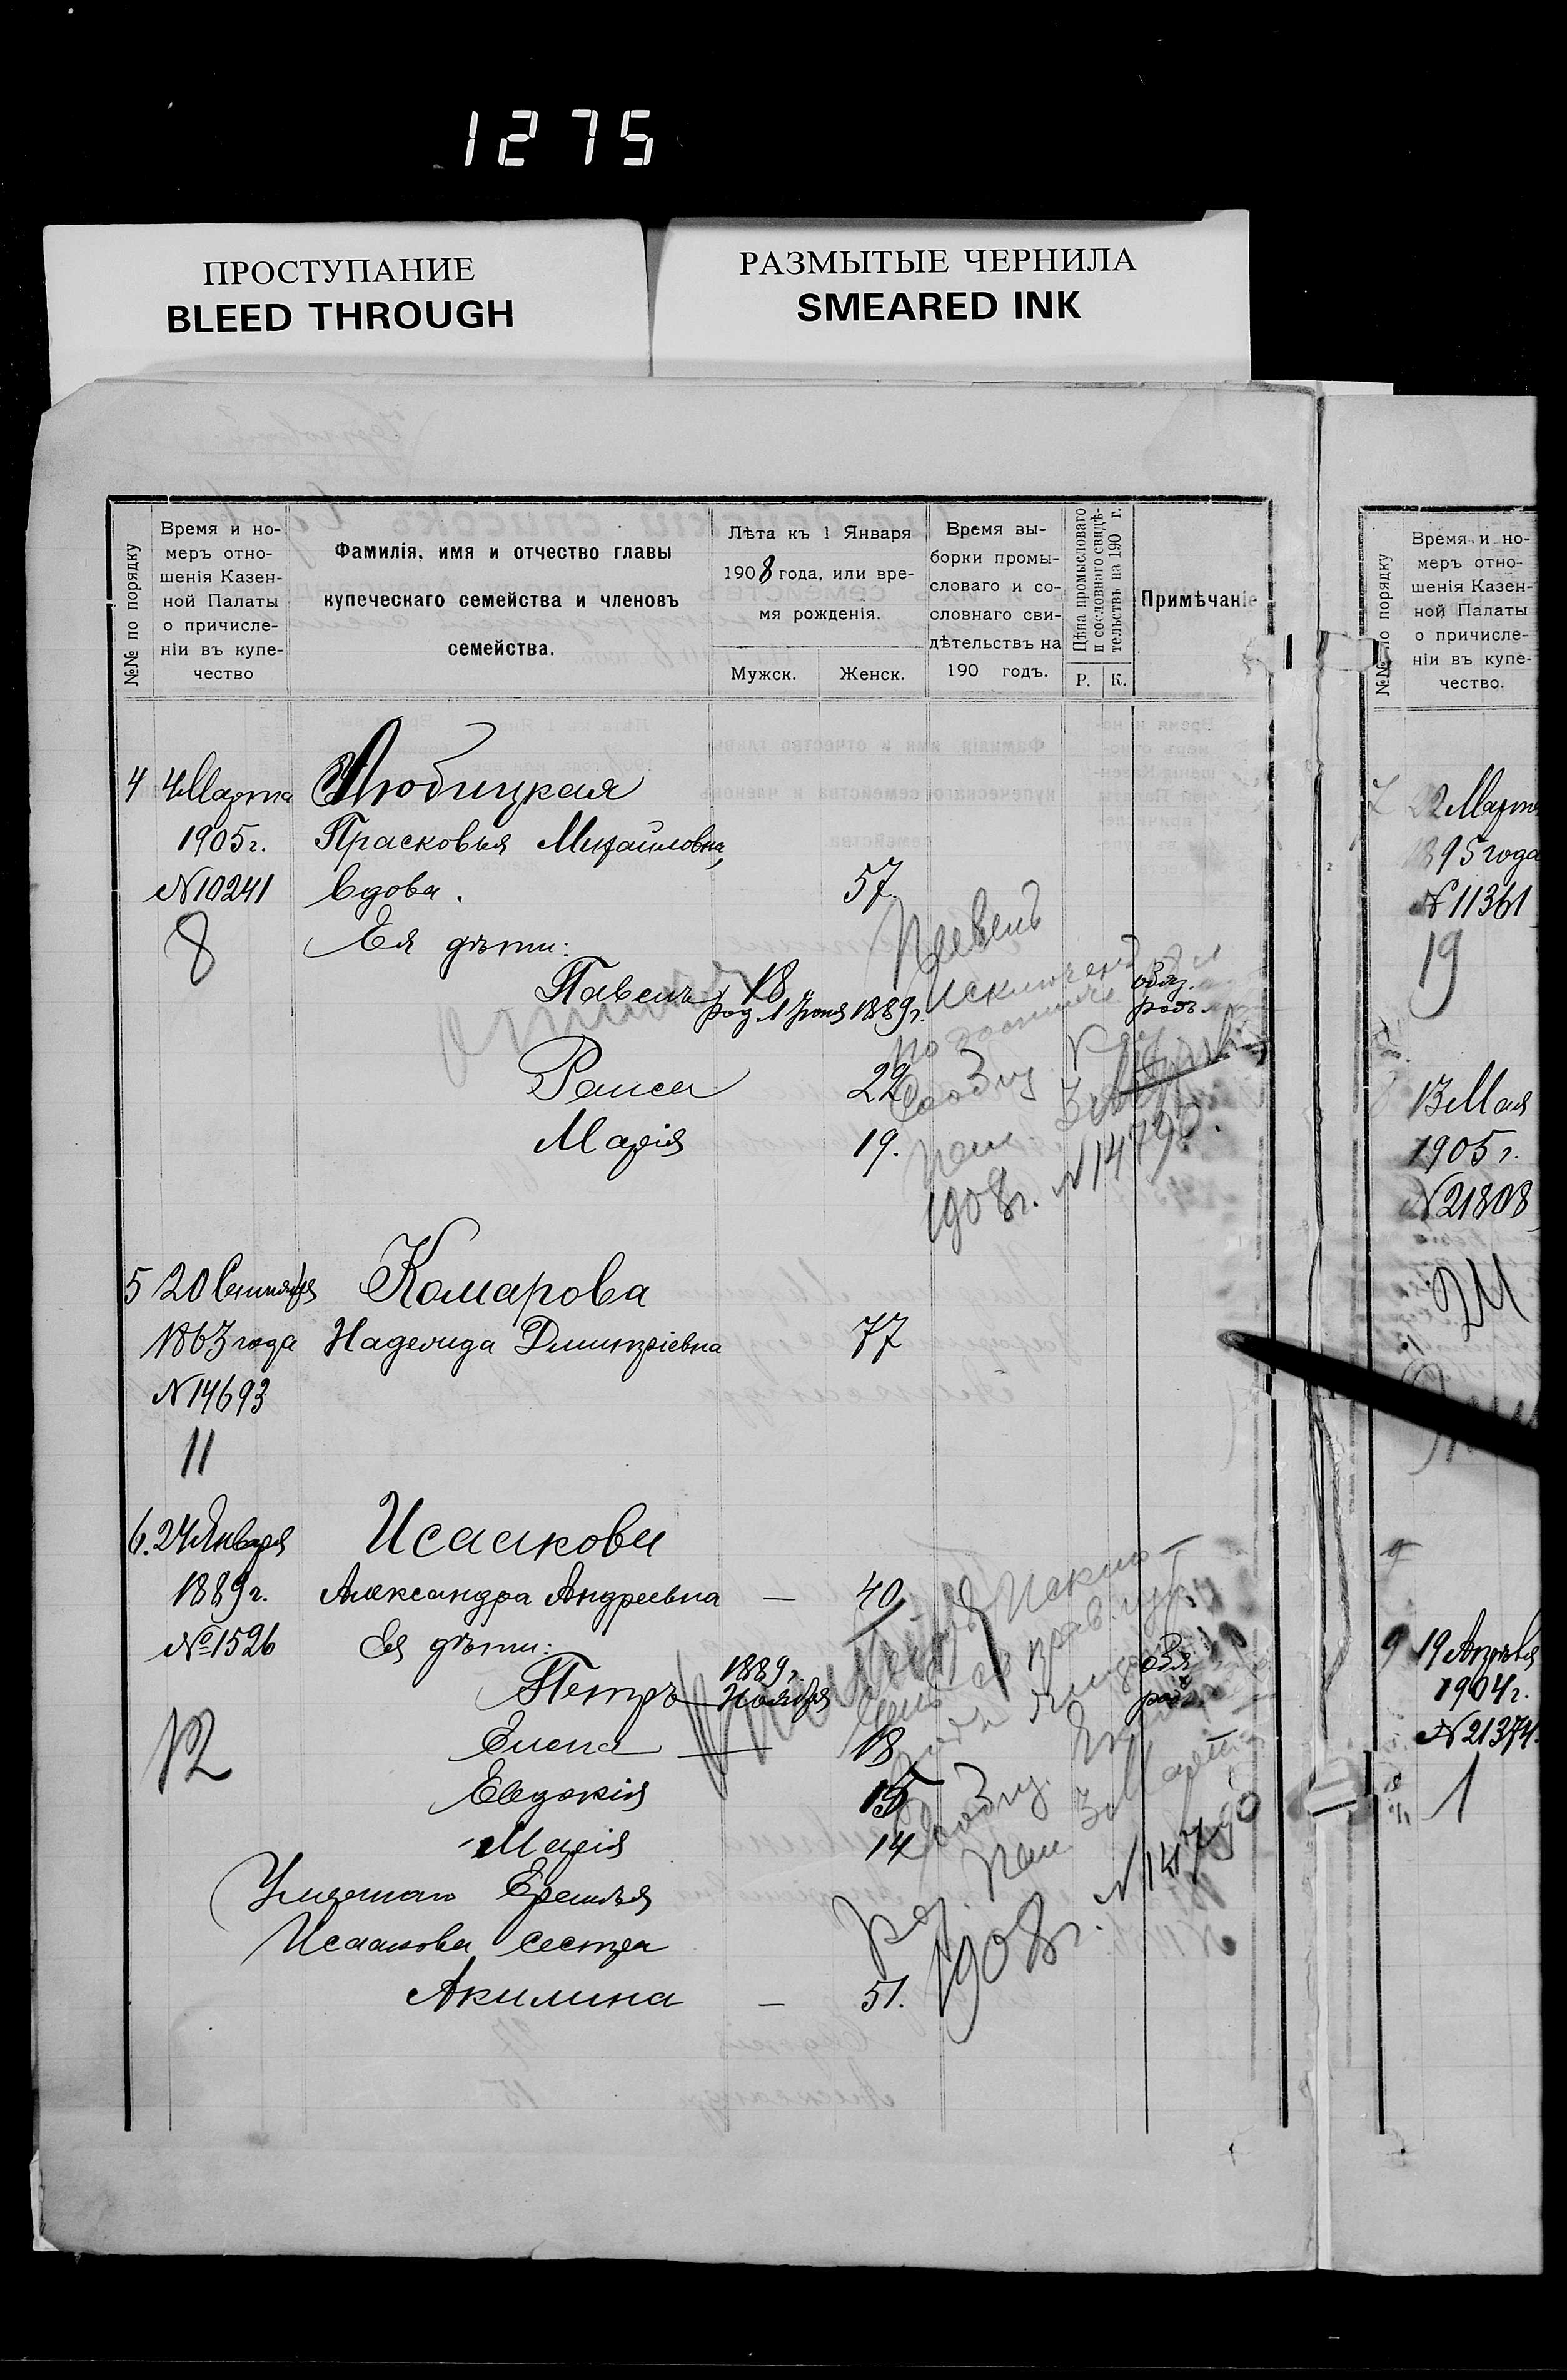 1275
ПРОСТУПАНИЕ
BLEED THROUGH
РАЗМЫТЫЕ ЧЕРНИЛА
SMEARED INK
№№ по порядку
Время и но-
меръ отно-
шенія Казен-
ной Палаты
о причисле-
ніи въ купе-
чество
Фамилія, имя и отчество главы
купеческаго семейства и членовъ
семейства.
Лѣта къ 1 Января
1908 года, или вре-
мя рожденія.
Мужск.
Женск.
Время вы-
борки промы-
словаго и со-
словнаго сви-
дѣтельствъ на
190 годъ.
Цѣна промысловаго
и сословнаго свидѣ-
тельствъ на 190 г.
Р.
К.
Примѣчаніе
4 4 Марта
1905 г.
№ 10241
8
Любицкая
Прасковья Михайловна,
вдова. 57.
Ея дѣти:
Павелъ 18
род. 1 Іюня 1889 г.
Раиса 22
Марія 19.
Павелъ
исключенъ
Сообщ.
1908 г. № 14790.
5 20 Сентября
1863 года
№ 14693
11
Комарова
Надежда Дмитріевна 77
6. 24 Января
1889 г.
№ 1526
12
Исаакова
Александра Андреевна — 40
Ея дѣти:
Петръ 1889 г.
Ноября
Елена — 18
Евдокія 15
Марія 14
Умершаго Еремѣя
Исаакова сестра
Акилина — 51.
Сообщ.
Каз. Пал. 3 Марта
1908 г. № 14790
№№ по порядку
Время и но-
меръ отно-
шенія Казен-
ной Палаты
о причисле-
ніи въ купе-
чество.
7 22 Марта
1895 года
№ 11361
19
13 Мая
1905 г.
№ 21808
9 19 Апрѣля
1904 г.
№ 21374.
1